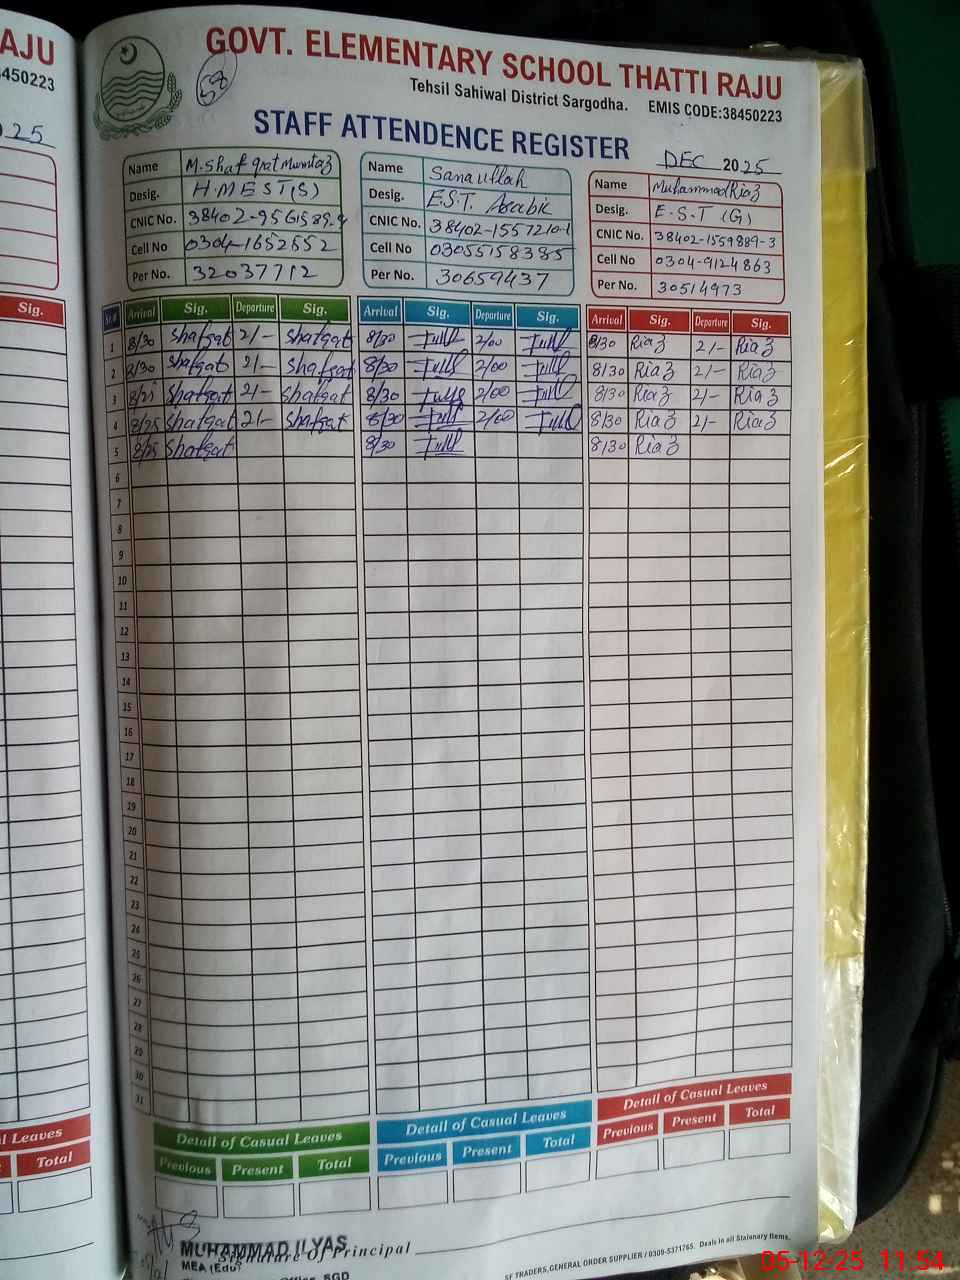 AJU
GOVT. ELEMENTARY SCHOOL THATTI RAJU
8450223
58
Tehsil Sahiwal District Sargodha. EMIS CODE:38450223
25
STAFF ATTENDENCE REGISTER
DEC 2025
Name M.Shafqat Mumtaz
Desig. H.M EST(S)
CNIC No.
Cell No 0304-1652552
Per No. 32037712
Name Sanaullah
Desig. E.S.T. Arabic
CNIC No. 38402-1557210-1
Cell No 03055758385
Per No. 30659437
Name Muhammad Riaz
Desig. E.S.T (G)
CNIC No. 38402-1559889-3
Cell No 0304-9124863
Per No. 30514973
Sig.
Sr.# Arrival Sig. Departure Sig. Arrival Sig. Departure Sig. Arrival Sig. Departure Sig.
1 8/30 Shafqat 2/- Shafqat 8/30 2/00 8/30 Riaz 2/- Riaz
2 8/30 Shafqat 2/- Shafqat 8/30 2/00 8/30 Riaz 2/- Riaz
3 Shafqat 2/- Shafqat 8/30 2/00 8/30 Riaz 2/- Riaz
4 8/25 Shafqat 2/- Shafqat 8/30 2/00 8/30 Riaz 2/- Riaz
5 8/25 Shafqat 8/30 8/30 Riaz
6
7
8
9
10
11
12
13
14
15
16
17
18
19
20
21
22
23
24
25
26
27
28
29
30
31
l Leaves
Total
Detail of Casual Leaves
Previous Present Total
Detail of Casual Leaves
Previous Present Total
Detail of Casual Leaves
Previous Present Total
MUHAMMAD ILYAS
Signature Of Principal
MEA (Edu)
Officer, SGD
SF TRADERS,GENERAL ORDER SUPPLIER / 0309-5371765. Deals in all Stationary Items.
05-12-25 11:54